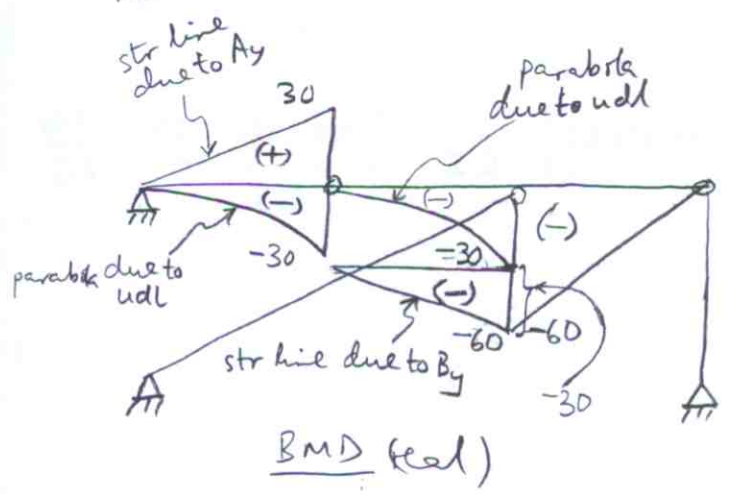 str line
due to Ay
30
parabola
due to udl
(+)
(-)
(-)
(-)
-30
-30
parabola due to
udl
(-)
-60
-60
str line due to By
-30
BMD (real)